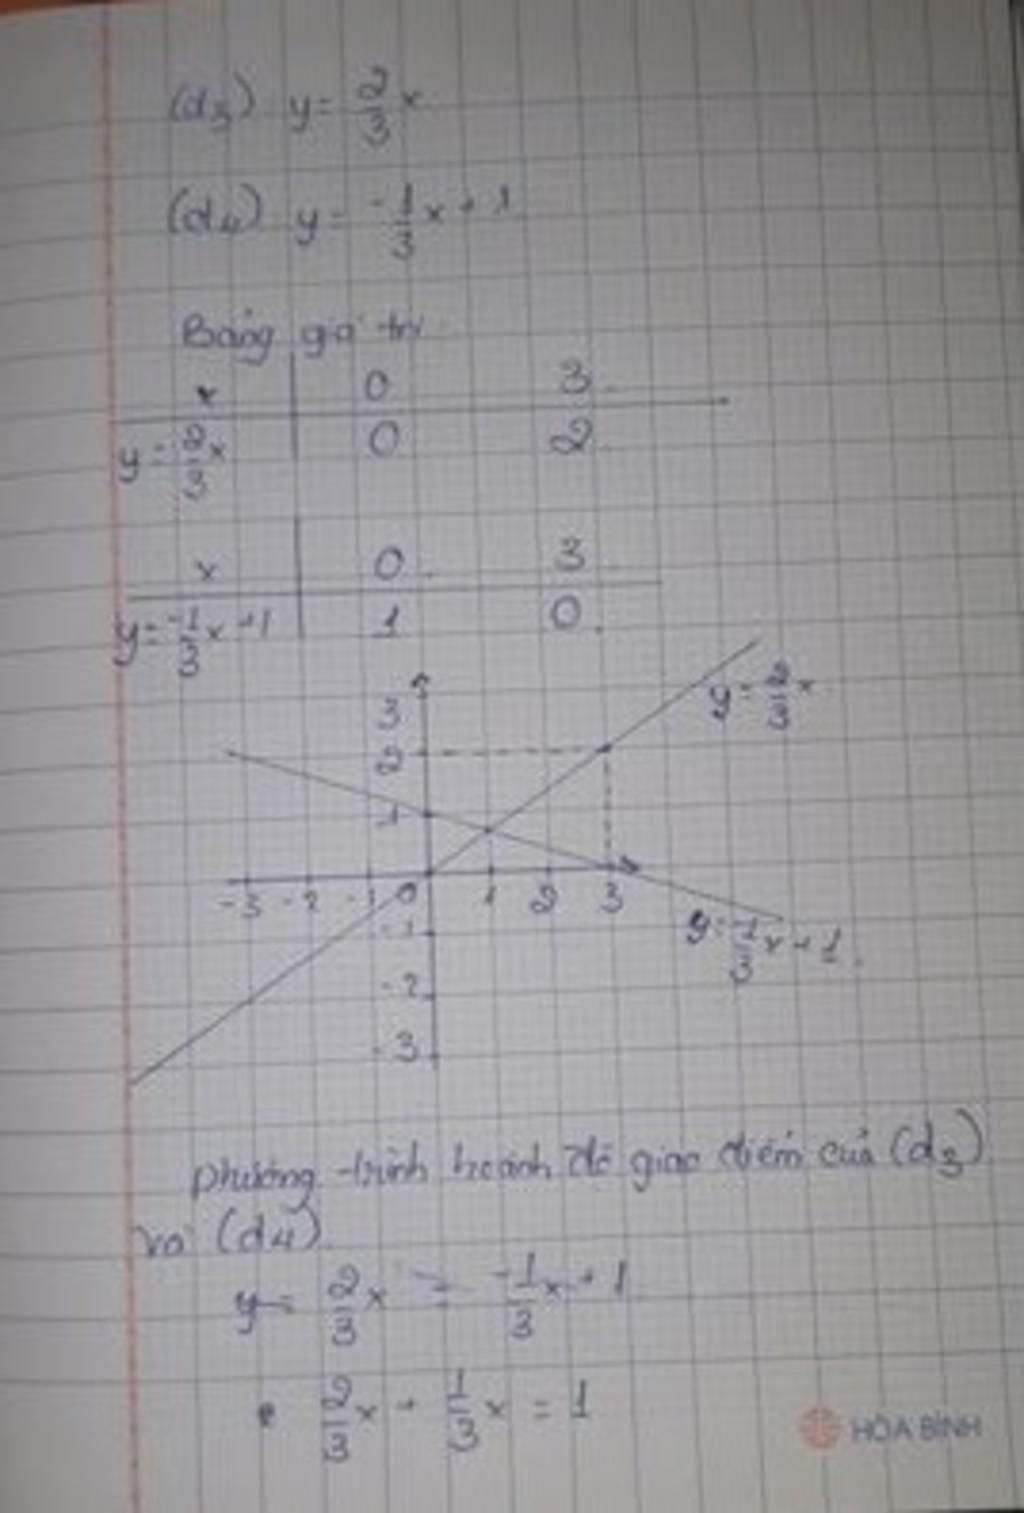 (d3) y = 2/3 x
(d4) y = -1/3 x + 1
Bảng giá trị
x 0 3
y = 2/3 x 0 2
x 0 3
y = -1/3 x + 1 1 0
3
y = 2/3 x
2
1
-3 -2 -1 0 1 2 3
y = -1/3 x + 1
-1
-2
-3
phương trình hoành độ giao điểm của (d3)
và (d4)
2/3 x = -1/3 x + 1
2/3 x + 1/3 x = 1
HÒA BÌNH